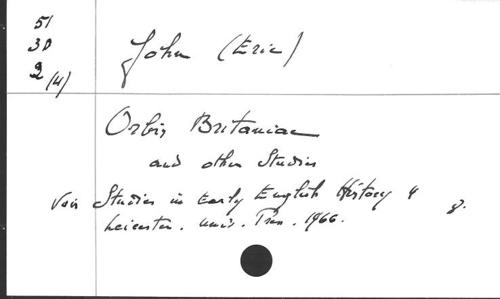 51
30
2 (4)
John (Eric)
Orbis Britaniae
and other Studies
Voir Studies in Early English History 4 8.
Leicester. Univ. Press. 1966.